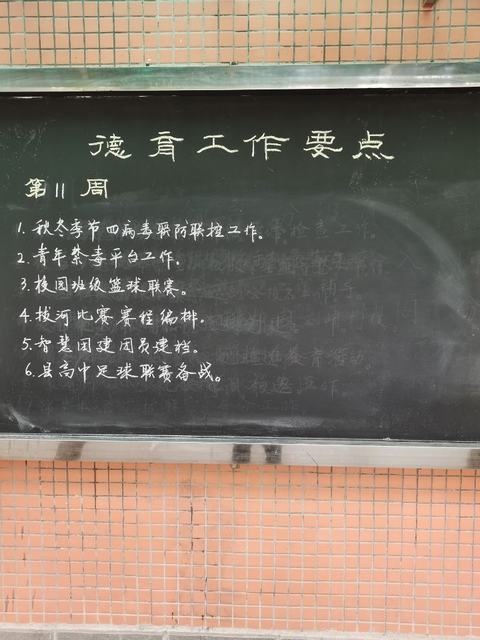 德育工作要点
第11周
1. 秋冬季节四病毒联防联控工作。
2. 青年禁毒平台工作.
3. 校园班级篮球联赛。
4. 拔河比赛赛程编排.
5. 智慧团建团员建档。
6. 县高中足球联赛备战。